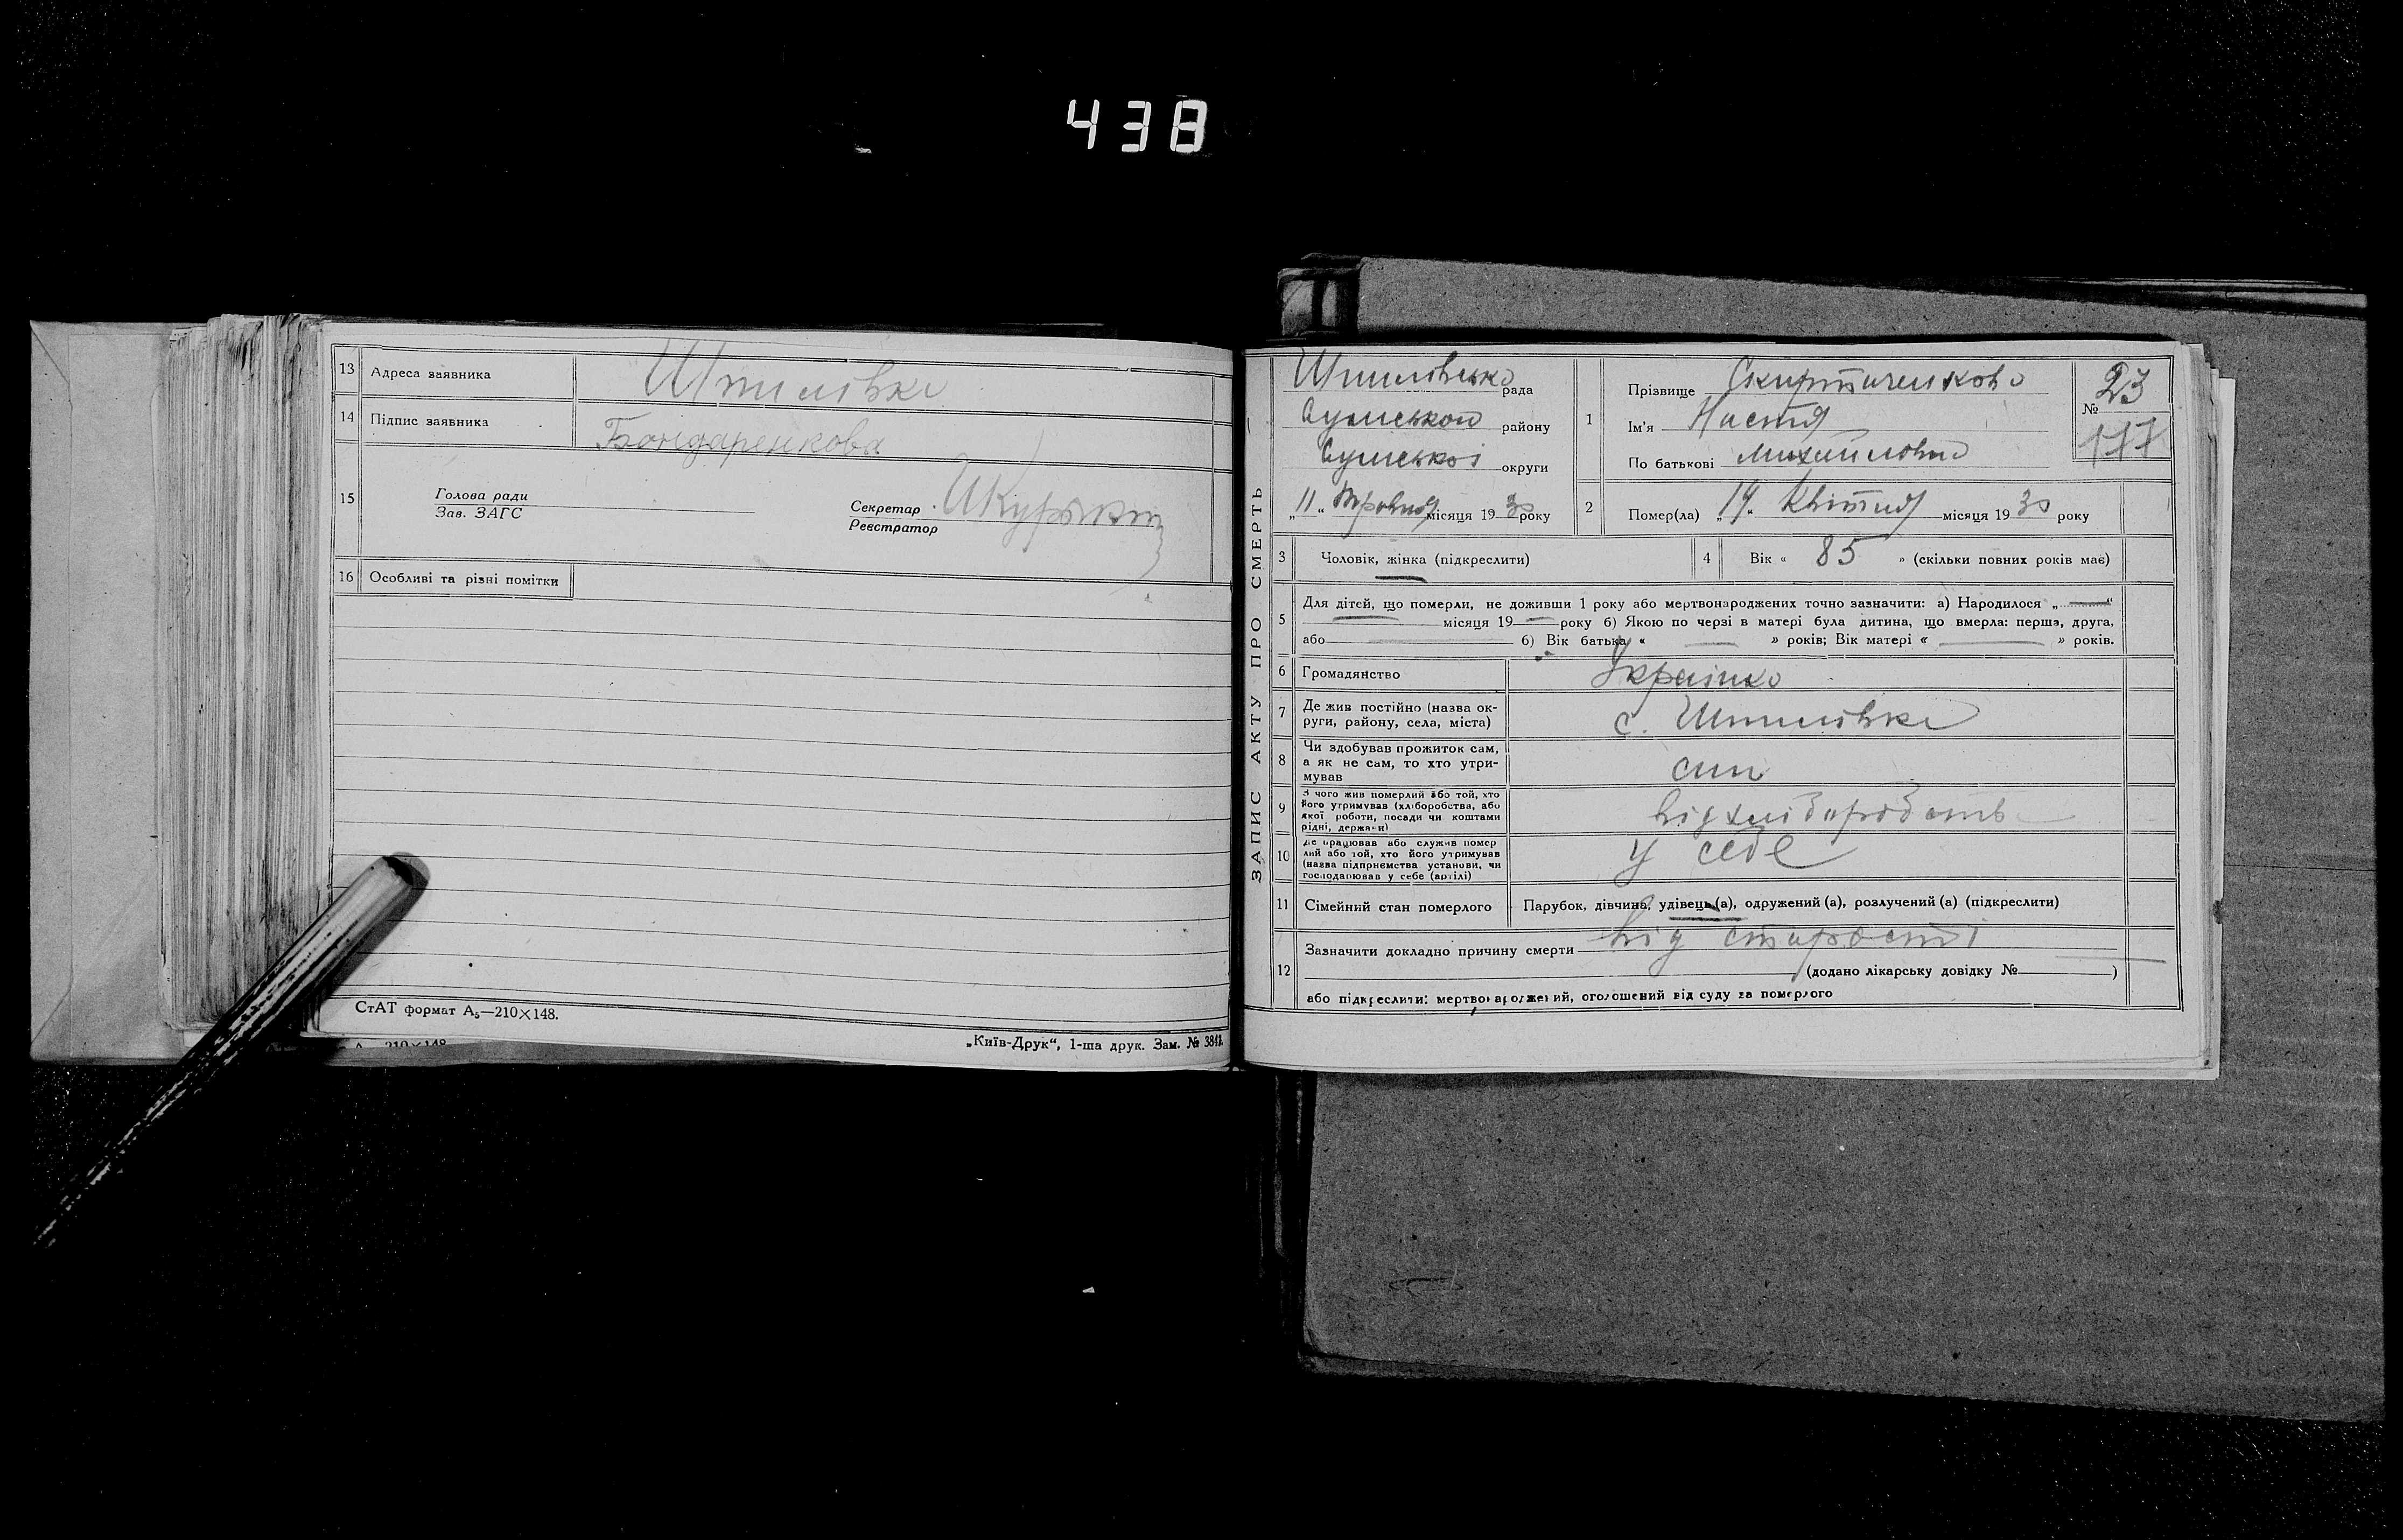 438
13 Адреса заявника Шпилівка
14 Підпис заявника Бондаренкова
15 Голова ради
Зав. ЗАГС
Секретар
Реєстратор
16 Особливі та різні помітки
СтАТ формат А₅—210×148.
А 210×148
„Київ-Друк“, 1-ша друк. Зам. № 3812
ЗАПИС АКТУ ПРО СМЕРТЬ
Шпилівсько рада
Сумського району
Сумської округи
„11“ травня місяця 1930 року
1 Прізвище
Ім'я Настя
По батькові Михайловна
№ 23
177
2 Помер(ла) „19“ Квітня місяця 1930 року
3 Чоловік, жінка (підкреслити)
4 Вік « 85 » (скільки повних років має)
5 Для дітей, що померли, не доживши 1 року або мертвонароджених точно зазначити: а) Народилося „ — “
місяця 19 — року б) Якою по черзі в матері була дитина, що вмерла: перша, друга,
або б) Вік батька « — » років; Вік матері « — » років.
6 Громадянство Українко
7 Де жив постійно (назва округи, району, села, міста) с. Шпилівка
8 Чи здобував прожиток сам,
а як не сам, то хто утри-
мував
син
9 З чого жив померлий або той, хто
його утримував (хліборобства, або
якої роботи, посади чи коштами
рідні, держави)
від хліборобств
10 Де працював або служив помер
лий або той, хто його утримував
(назва підприємства установи, чи
господарював у себе (артілі)
у себе
11 Сімейний стан померлого Парубок, дівчина, удівець(а), одружений(а), розлучений(а) (підкреслити)
12 Зазначити докладно причину смерти від старості
(додано лікарську довідку № )
або підкреслити: мертвонароджений, оголошений від суду за померлого